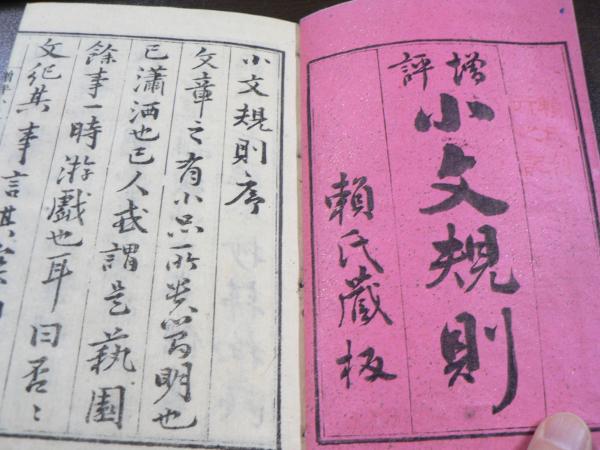 增評
小文規則
賴氏藏板
小文規則序
文章之有小品所貴簡明也
已瀟洒也已人或謂是藝園
餘事一時游戲也耳曰否〻
文紀其事言其